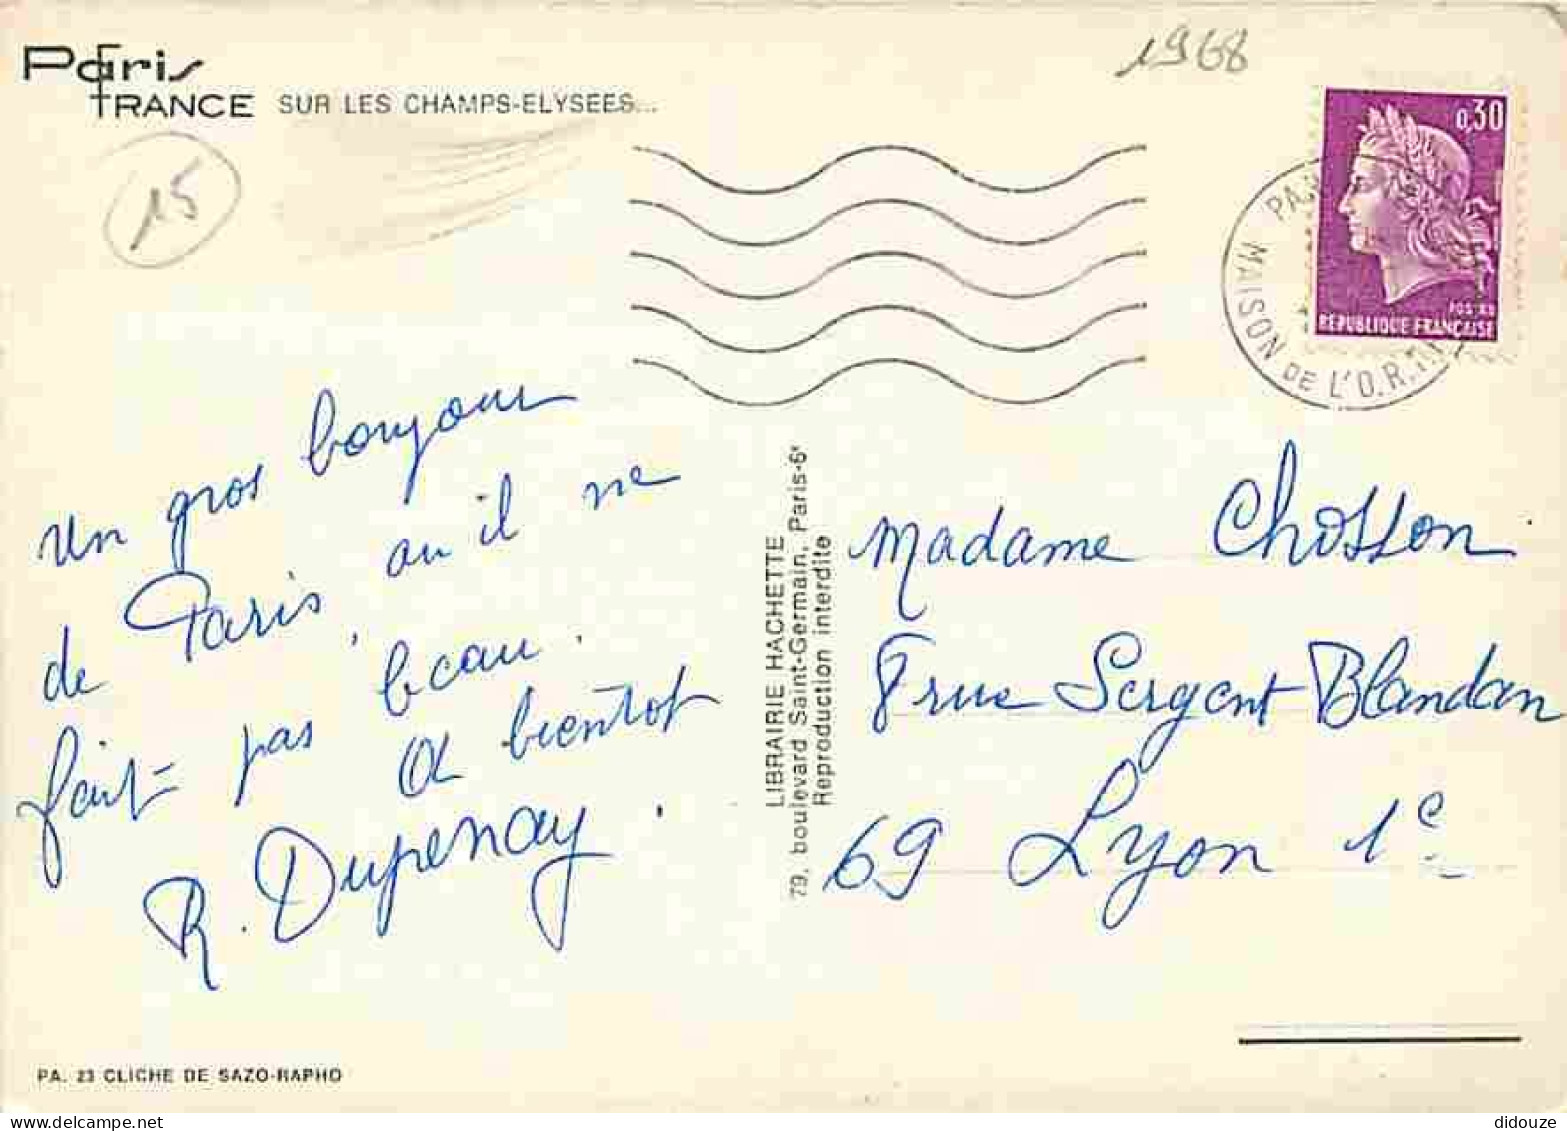 1968
Paris
FRANCE SUR LES CHAMPS-ELYSEES...
15
0,30
POSTES
REPUBLIQUE FRANÇAISE
PARIS
MAISON DE L'O.R.T.F.
Un gros bonjour
de Paris, ou il ne
fait pas beau.
A bientot
R. Dupenay.
LIBRAIRIE HACHETTE
79, boulevard Saint-Germain, Paris-6e
Reproduction interdite
Madame Chosson
8 rue Sergent Blandan
69 Lyon 1e
PA. 23 CLICHE DE SAZO-RAPHO
didouze